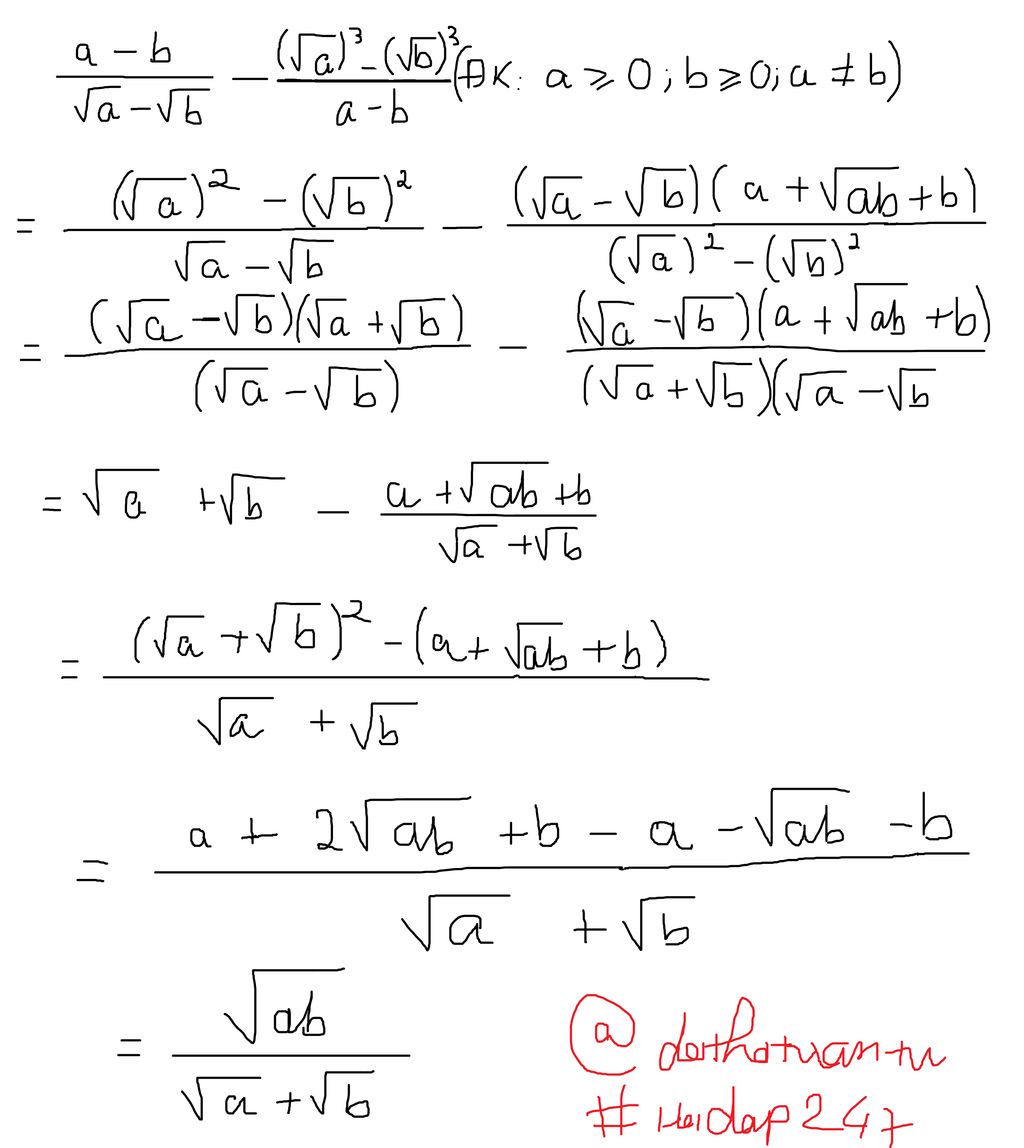 (a - b)/(√a - √b) - ((√a)³ - (√b)³)/(a - b) (ĐK: a ≥ 0; b ≥ 0; a ≠ b)
= ((√a)² - (√b)²)/(√a - √b) - ((√a - √b)(a + √ab + b))/((√a)² - (√b)²)
= ((√a - √b)(√a + √b))/((√a - √b)) - ((√a - √b)(a + √ab + b))/((√a + √b)(√a - √b)
= √a + √b - (a + √ab + b)/(√a + √b)
= ((√a + √b)² - (a + √ab + b))/(√a + √b)
= (a + 2√ab + b - a - √ab - b)/(√a + √b)
= √ab/(√a + √b)
@
#Hoidap247